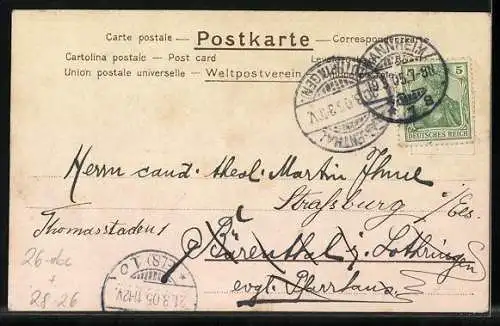 Carte postale — Postkarte — Correspondenz
Cartolina postale — Post card
Union postale universelle — Weltpostverein
MANNHEIM
5
DEUTSCHES REICH
Herrn cand. theol. Martin
Straßburg i/Els.
Thomasstaden 1
Bärenthal i. Lothringen
evgl. Pfarrhaus.
26
28 26
21.3.05.11-12V.